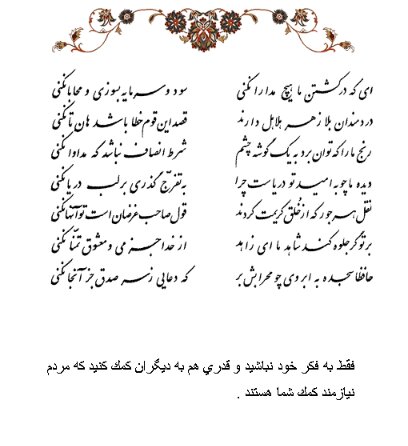 ای که در کشتن ما هیچ مدارا نکنی سود و سرمایه بسوزی و محابا نکنی
دردمندان بلا زهر هلاهل دارند قصد این قوم خطا باشد هان تا نکنی
رنج ما را که توان برد به یک گوشه چشم شرط انصاف نباشد که مداوا نکنی
دیده ما چو به امید تو دریاست چرا به تفرج گذری بر لب دریا نکنی
نقل هر جور که از خلق کریمت کردند قول صاحب غرضان است تو آنها نکنی
بر تو گر جلوه کند شاهد ما ای زاهد از خدا جز می و معشوق تمنا نکنی
حافظا سجده به ابروی چو محرابش بر که دعایی ز سر صدق جز آنجا نکنی
فقط به فکر خود نباشید و قدري هم به دیگران کمك کنید که مردم
نیازمند کمك شما هستند .